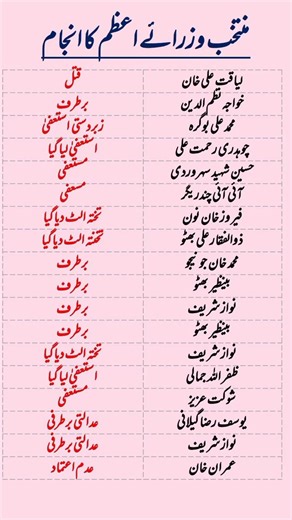 منتخب وزرائے اعظم کا انجام
لیاقت علی خان قتل
خواجہ ناظم الدین برطرف
محمد علی بوگرہ زبردستی استعفیٰ
چوہدری رحمت علی استعفیٰ لیا گیا
حسین شہید سہروردی مستعفی
آئی آئی چندریگر مستعفی
فیروز خان نون تختہ الٹ دیا گیا
ذوالفقار علی بھٹو تختہ الٹ دیا گیا
محمد خان جونیجو برطرف
بینظیر بھٹو برطرف
نواز شریف برطرف
بینظیر بھٹو برطرف
نواز شریف تختہ الٹ دیا گیا
ظفر اللہ جمالی استعفیٰ لیا گیا
شوکت عزیز مستعفی
یوسف رضا گیلانی عدالتی برطرفی
نواز شریف عدالتی برطرفی
عمران خان عدم اعتماد